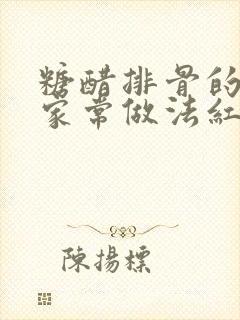 糖醋排骨的
家常做法紅
陳揚標